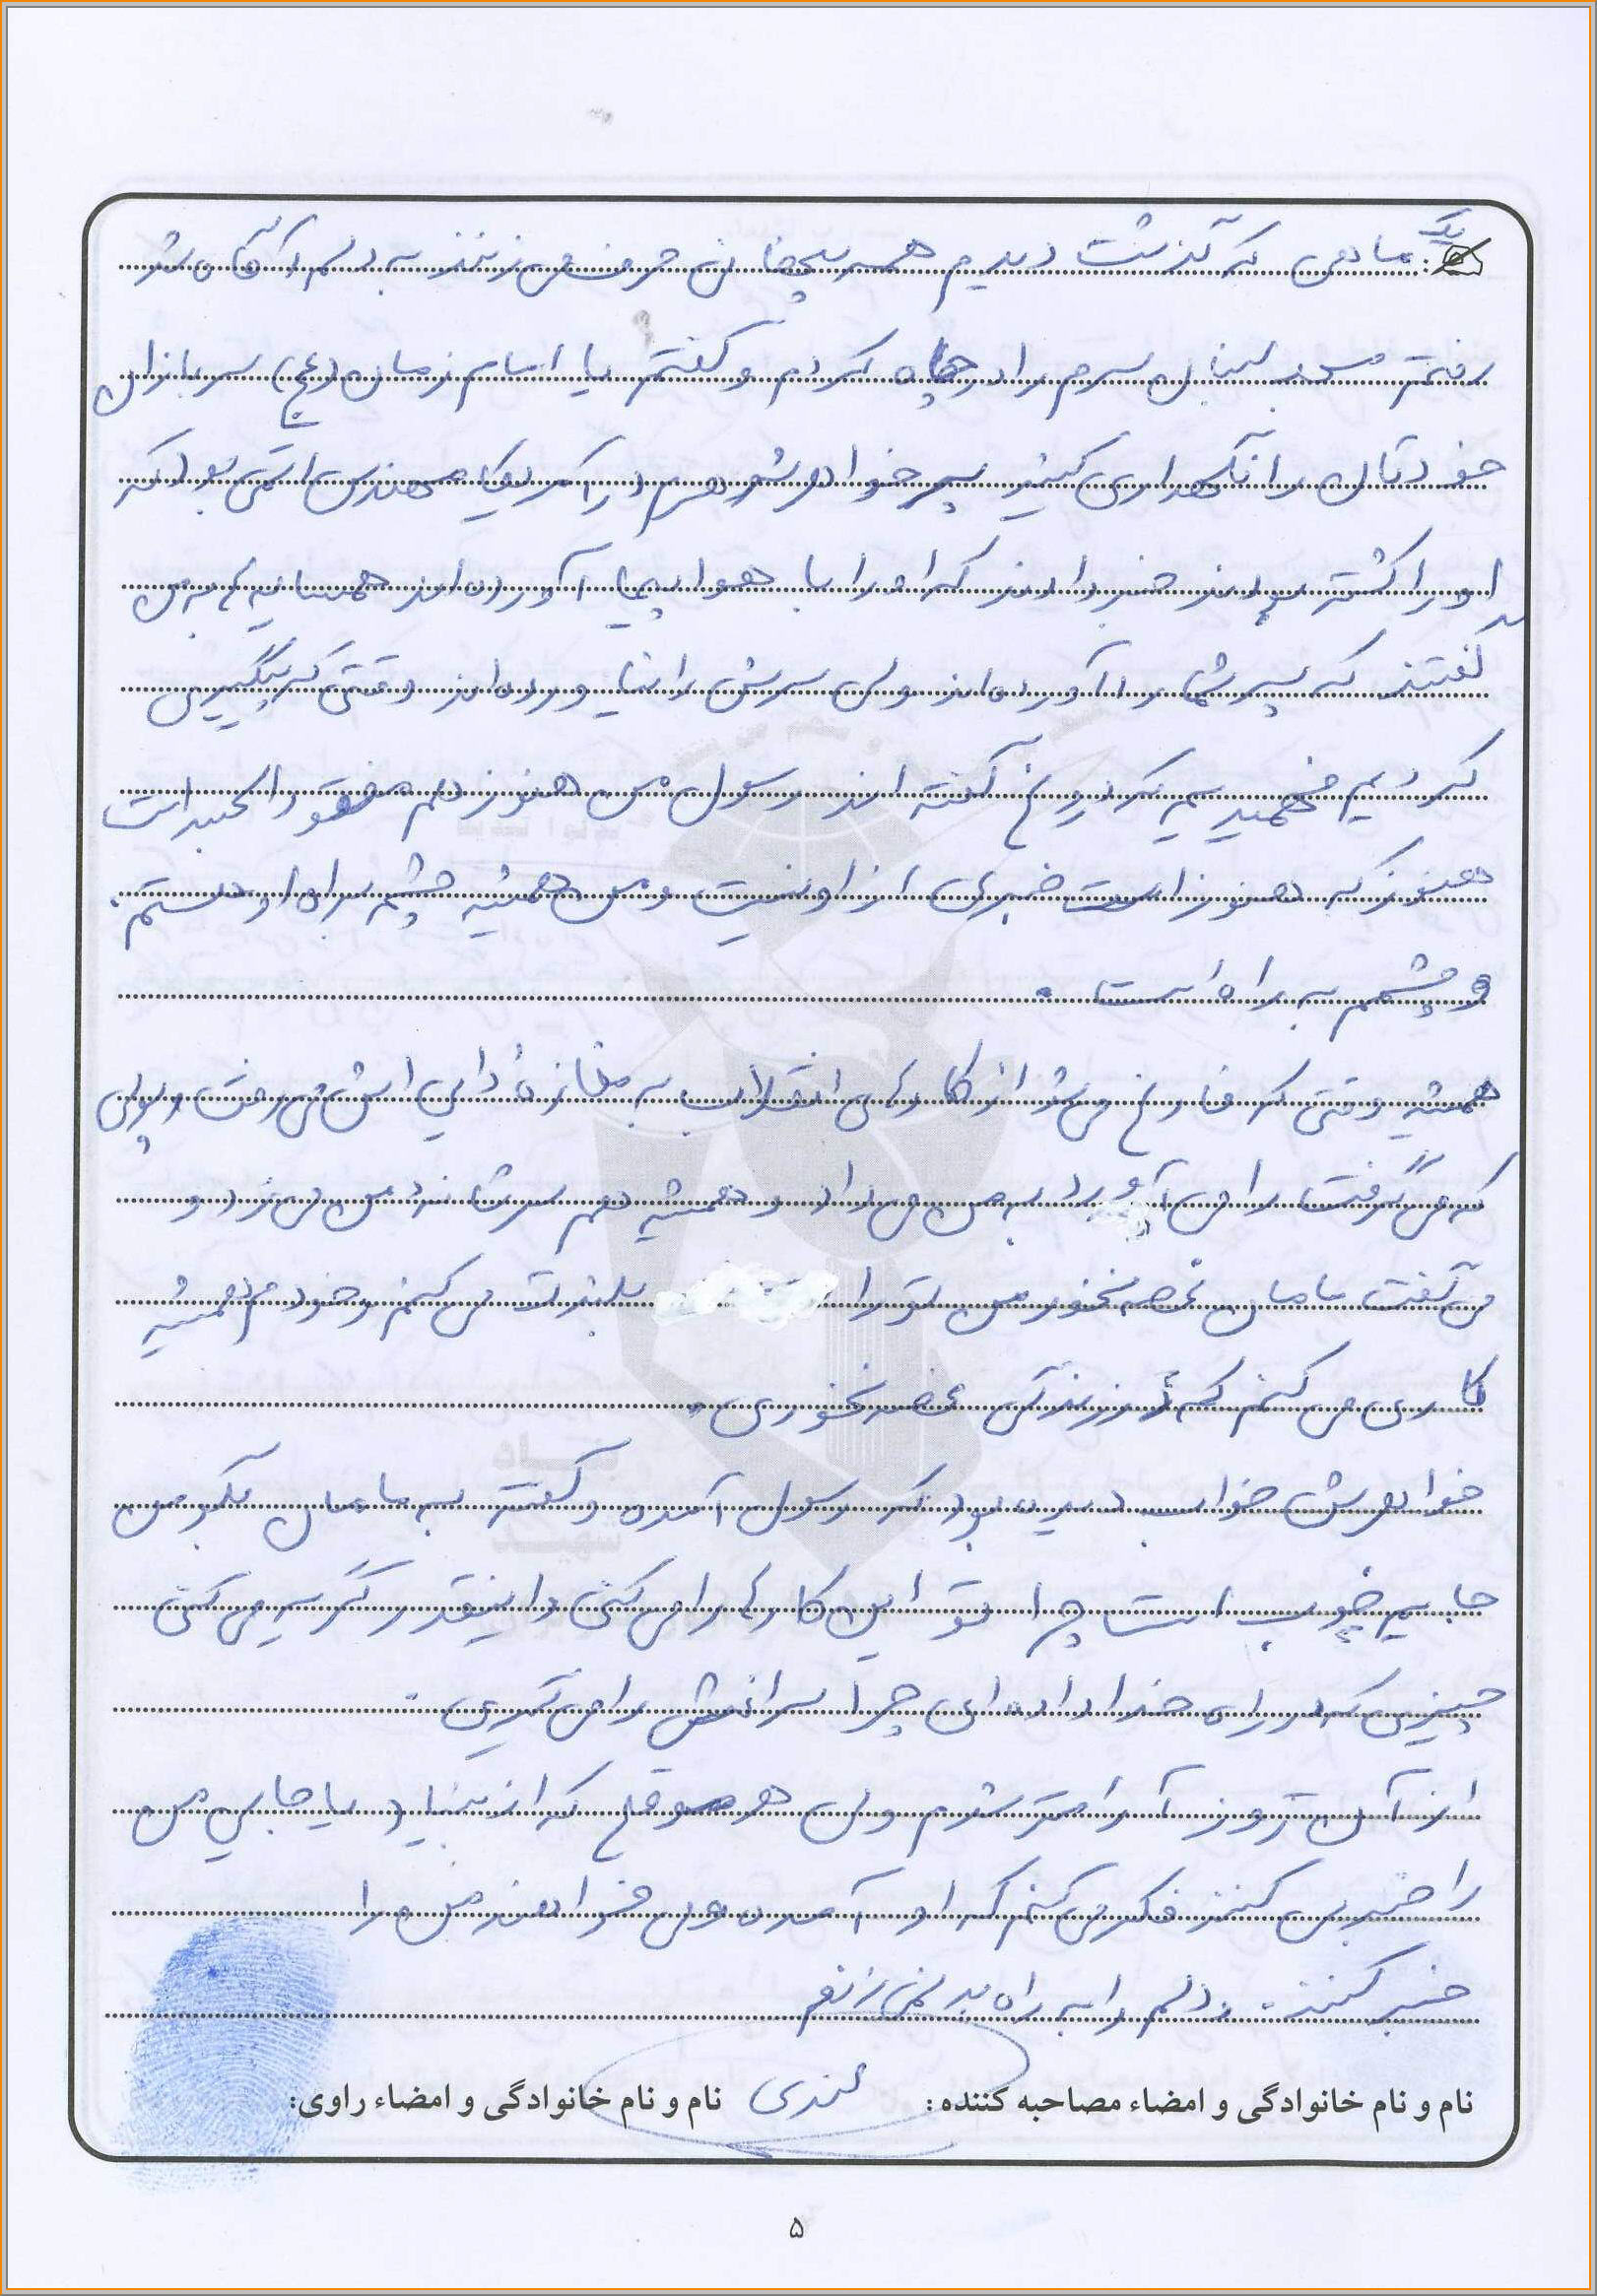 یک
ماهی که گذشت دیدم همه پچپچ حرف می زنند به دلم آگاه شد
رفتم مسجد لبنان سرم را در چاه کردم و گفتم یا امام زمان (عج) سربازان
خودتان را نگهداری کنید پسر خواهر شوهرم در آمریکا مهندس اتمی بود که
او را کشته بودند خبر دادند که او را با هواپیما آورده اند همسایه ها به من
گفتند که پسر شما را آورده اند ولی سرش را نیاورده اند وقتی که پیگیری
کردیم فهمیدیم که دروغ گفته اند رسول من هنوز هم مفقود الخبر است
هنوز که هنوز است خبری از او نیست و من همیشه چشم براه او هستم.
و چشمم به راه است .
همیشه وقتی که فارغ می شد از کارهای انقلاب به مغازه دایی اش می رفت و پولی
که می گرفت را می آورد به من می داد و همیشه هم سرش را نزد من می زد و
می گفت مامان غصه نخور من تو را بلندت می کنم و خودم همیشه
کاری می کنم که در زندگی غصه نخوری .
خواهرش خواب دیده بود که رسول آمده و گفته به مامان بگو من
جایم خوب است چرا تو این کارها را می کنی و اینقدر گریه می کنی
چیزی که در راه خدا داده ای چرا سراغش را می گیری .
از آن روز آرامتر شدم ولی هر موقع که از بنیاد یا جایی من
را خبر می کنند فکر می کنم که او آمده و می خواهند من را
خبر کنند . دلم را به راه بد نمی زنم
نام و نام خانوادگی و امضاء مصاحبه کننده: نام و نام خانوادگی و امضاء راوی:
۵